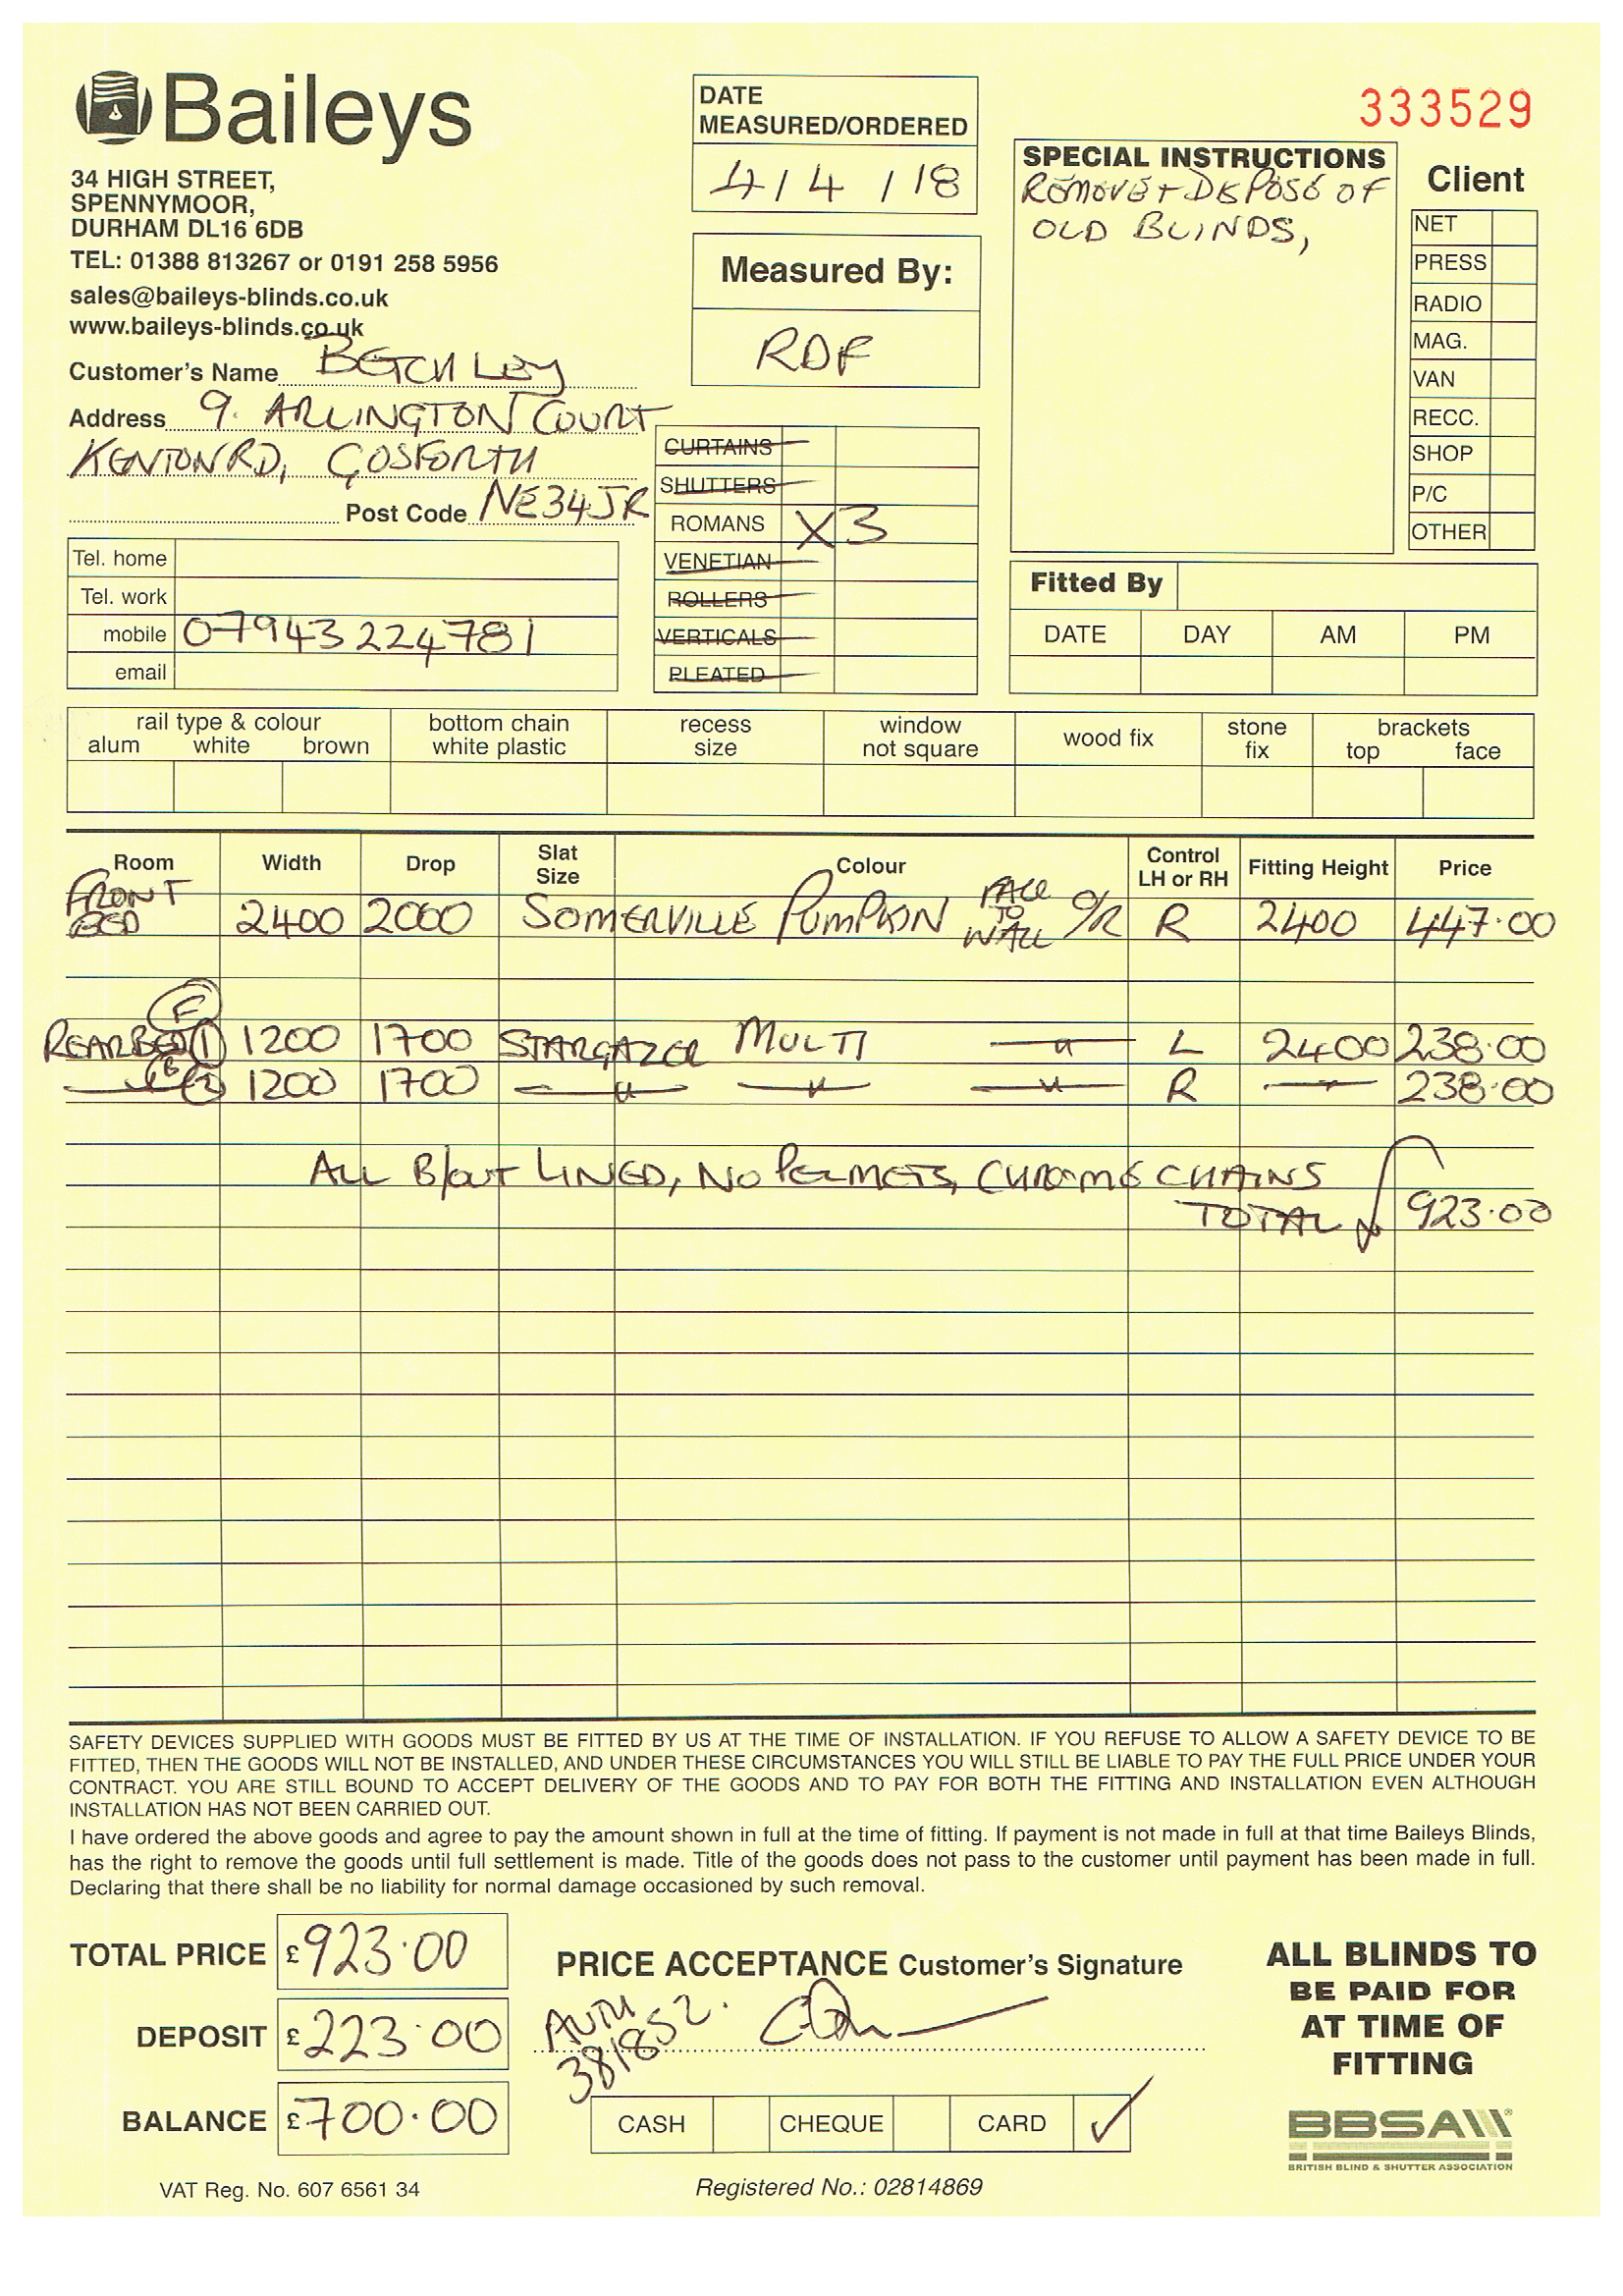 Baileys
34 HIGH STREET,
SPENNYMOOR,
DURHAM DL16 6DB
TEL: 01388 813267 or 0191 258 5956
sales@baileys-blinds.co.uk
www.baileys-blinds.co.uk
Customer's Name BETCHLEY
Address 9. ARLINGTON COURT
KENTON RD, GOSFORTH
Post Code NE34JR
Tel. home
Tel. work
mobile 07943224781
email
DATE
MEASURED/ORDERED
4/4/18
Measured By:
RDF
CURTAINS
SHUTTERS
ROMANS X3
VENETIAN
ROLLERS
VERTICALS
PLEATED
333529
SPECIAL INSTRUCTIONS
REMOVE + DISPOSE OF
OLD BLINDS,
Client
NET
PRESS
RADIO
MAG.
VAN
RECC.
SHOP
P/C
OTHER
Fitted By
DATE DAY AM PM
rail type & colour bottom chain recess window wood fix stone brackets
alum white brown white plastic size not square fix top face
Room Width Drop Slat Size Colour Control LH or RH Fitting Height Price
FRONT BED 2400 2000 SOMERVILLE PUMPKIN FACE TO WALL O/R R 2400 447.00
REAR BED (1) F 1200 1700 STARGAZER MULTI —"— L 2400 238.00
—"— (2) 1200 1700 —"— —"— —"— R —"— 238.00
ALL B/OUT LINED, NO PELMETS, CHROME CHAINS
TOTAL 923.00
SAFETY DEVICES SUPPLIED WITH GOODS MUST BE FITTED BY US AT THE TIME OF INSTALLATION. IF YOU REFUSE TO ALLOW A SAFETY DEVICE TO BE
FITTED, THEN THE GOODS WILL NOT BE INSTALLED, AND UNDER THESE CIRCUMSTANCES YOU WILL STILL BE LIABLE TO PAY THE FULL PRICE UNDER YOUR
CONTRACT. YOU ARE STILL BOUND TO ACCEPT DELIVERY OF THE GOODS AND TO PAY FOR BOTH THE FITTING AND INSTALLATION EVEN ALTHOUGH
INSTALLATION HAS NOT BEEN CARRIED OUT.
I have ordered the above goods and agree to pay the amount shown in full at the time of fitting. If payment is not made in full at that time Baileys Blinds,
has the right to remove the goods until full settlement is made. Title of the goods does not pass to the customer until payment has been made in full.
Declaring that there shall be no liability for normal damage occasioned by such removal.
TOTAL PRICE £923.00
DEPOSIT £223.00
BALANCE £700.00
PRICE ACCEPTANCE Customer's Signature
AUTH
381852.
CASH CHEQUE CARD ✓
ALL BLINDS TO
BE PAID FOR
AT TIME OF
FITTING
BBSA
BRITISH BLIND & SHUTTER ASSOCIATION
VAT Reg. No. 607 6561 34
Registered No.: 02814869